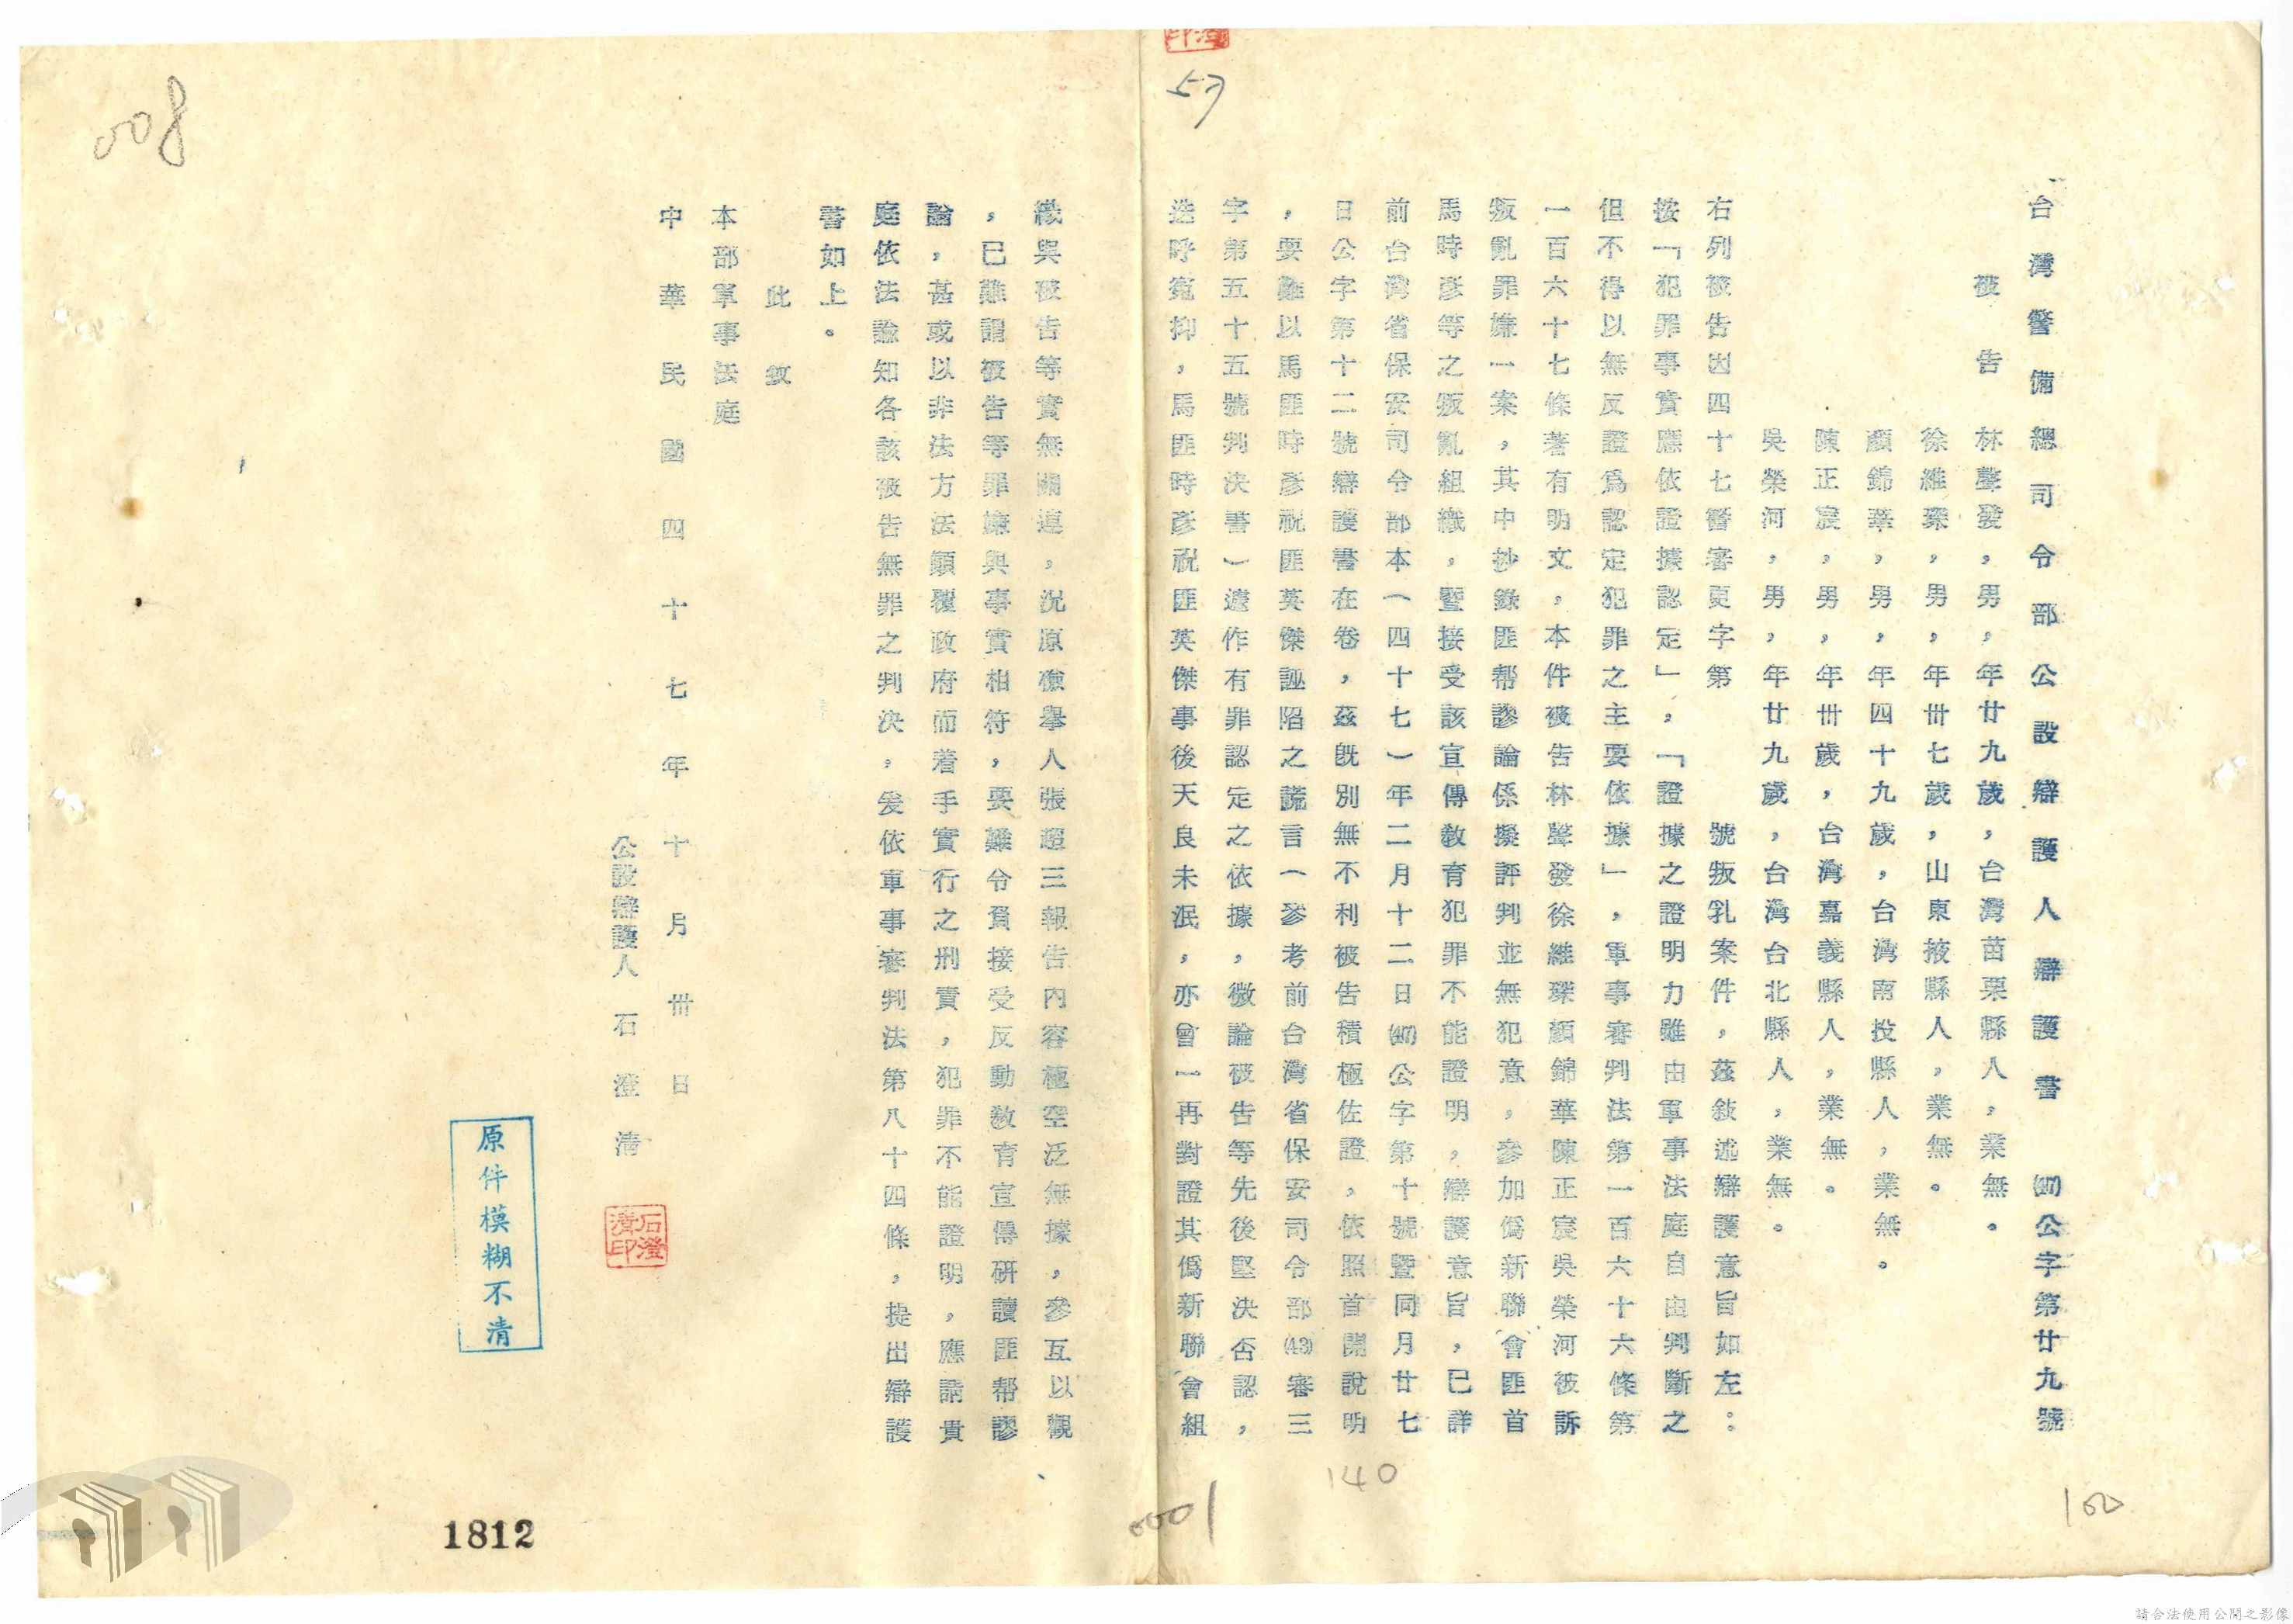 台灣警備總司令部公設辯護人辯護書 (47)公字第廿九號
被告 林聲發,男,年廿九歲,台灣苗栗縣人,業無。
徐維琛,男,年卅七歲,山東掖縣人,業無。
顏錦華,男,年四十九歲,台灣南投縣人,業無。
陳正宸,男,年卅歲,台灣嘉義縣人,業無。
吳榮河,男,年廿九歲,台灣台北縣人,業無。
右列被告因四十七警審更字第 號叛乳案件,茲敍述辯護意旨如左:
按「犯罪事實應依證據認定」,「證據之證明力雖由軍事法庭自由判斷之
但不得以無反證爲認定犯罪之主要依據」,軍事審判法第一百六十六條第
一百六十七條著有明文,本件被告林聲發徐維琛顏錦華陳正宸吳榮河被訴
叛亂罪嫌一案,其中抄錄匪帮謬論係擬評判並無犯意,參加僞新聯會匪首
馬時彥等之叛亂組織,暨接受該宣傳敎育犯罪不能證明,辯護意旨,已詳
前台灣省保安司令部本(四十七)年二月十二日(47)公字第十號暨同月廿七
日公字第十二號辯護書在卷,茲旣別無不利被告積極佐證,依照首開說明
,要難以馬匪時彥祝匪英傑誣陷之謊言(參考前台灣省保安司令部(43)審三
字第五十五號判決書)遽作有罪認定之依據,微論被告等先後堅決否認,
迭呼寃抑,馬匪時彥祝匪英傑事後天良未泯,亦曾一再對證其僞新聯會組
織與被告等實無關連,況原檢舉人張超三報告內容極空泛無據,參互以觀
,已難謂被告等罪嫌與事實相符,要難令負接受反動敎育宣傳研讀匪帮謬
論,甚或以非法方法顚覆政府而着手實行之刑責,犯罪不能證明,應請貴
庭依法諭知各該被告無罪之判決,爰依軍事審判法第八十四條,提出辯護
書如上。
此致
本部軍事法庭
中華民國四十七年十月卅日
公設辯護人 石澄清
石澄清印
原件模糊不清
1812
008
57
140
0001
100
請合法使用公開之影像